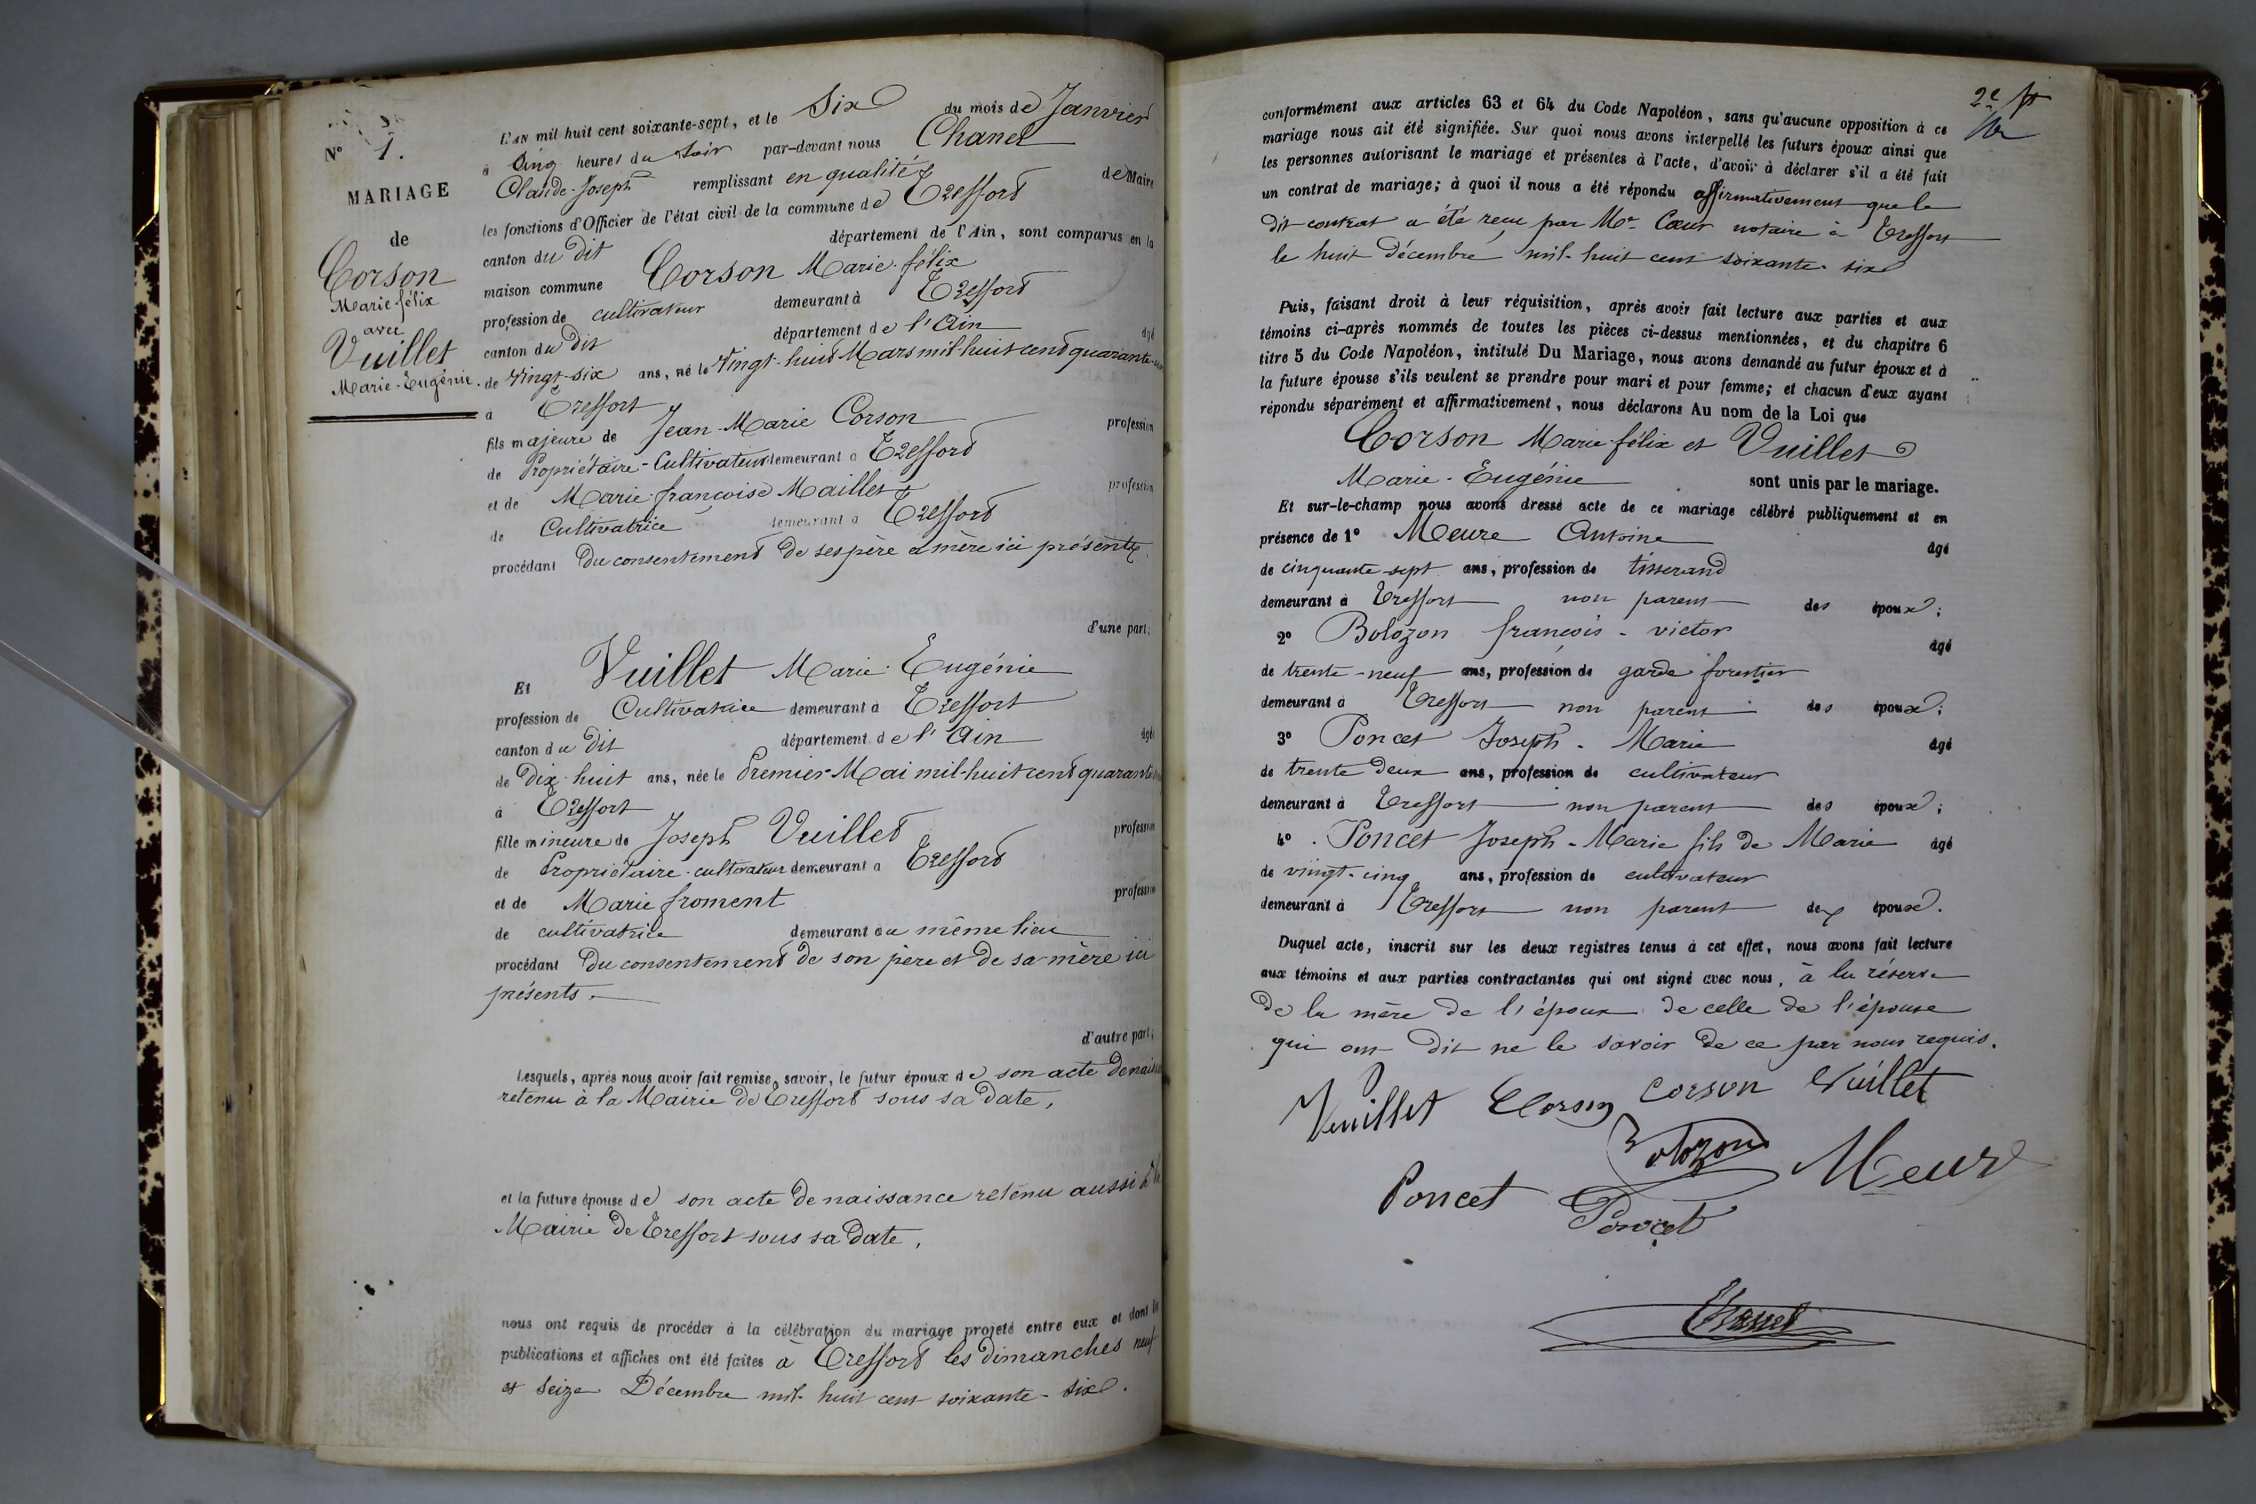 N° 1.
MARIAGE
de
Corson
Marie félix
avec
Vuillet
Marie-Eugénie.
L'AN mil huit cent soixante-sept, et le Six du mois de Janvier
à Cinq heures du Soir par-devant nous Chanel
Claude-Joseph remplissant en qualité de Maire
les fonctions d'Officier de l'état civil de la commune de Treffort
canton du dit département de l'Ain, sont comparus en la
maison commune Corson Marie-félix
profession de cultivateur demeurant à Treffort
canton du dit département de l'Ain âgé
de Vingt-six ans, né le Vingt-huit Mars mil-huit cent quarante
à Treffort
fils majeure de Jean-Marie Corson profession
de Propriétaire-Cultivateur demeurant à Treffort
et de Marie françoise Maillet profession
de Cultivatrice demeurant à Treffort
procédant du consentement de ses père et mère ici présents.
d'une part;
Et Vuillet Marie-Eugénie
profession de Cultivatrice demeurant à Treffort
canton du dit département de l'Ain âgé
de Dix-huit ans, née le Premier Mai mil-huit cent quarante
à Treffort
fille mineure de Joseph Vuillet profession
de Propriétaire-cultivateur demeurant à Treffort
et de Marie froment profession
de cultivatrice demeurant au même lieu
procédant du consentement de son père et de sa mère ici
présents.
d'autre part;
Lesquels, après nous avoir fait remise, savoir, le futur époux de son acte de
retenu à la Mairie de Treffort sous sa date,
et la future épouse de son acte de naissance retenu aussi à la
Mairie de Treffort sous sa date,
nous ont requis de procéder à la célébration du mariage projeté entre eux et dont les
publications et affiches ont été faites à Treffort les dimanches neuf
et seize Décembre mil-huit cent soixante-six.
2e
conformément aux articles 63 et 64 du Code Napoléon, sans qu'aucune opposition à ce
mariage nous ait été signifiée. Sur quoi nous avons interpellé les futurs époux ainsi que
les personnes autorisant le mariage et présentes à l'acte, d'avoir à déclarer s'il a été fait
un contrat de mariage; à quoi il nous a été répondu affirmativement que le
dit contrat a été reçu par Me Cœur notaire à Treffort
le huit décembre mil-huit cent soixante-six
Puis, faisant droit à leur réquisition, après avoir fait lecture aux parties et aux
témoins ci-après nommés de toutes les pièces ci-dessus mentionnées, et du chapitre 6
titre 5 du Code Napoléon, intitulé Du Mariage, nous avons demandé au futur époux et à
la future épouse s'ils veulent se prendre pour mari et pour femme; et chacun d'eux ayant
répondu séparément et affirmativement, nous déclarons Au nom de la Loi que
Corson Marie félix et Vuillet
Marie-Eugénie sont unis par le mariage.
Et sur-le-champ nous avons dressé acte de ce mariage célébré publiquement et en
présence de 1° Meure Antoine âgé
de cinquante-sept ans, profession de tisserand
demeurant à Treffort non parent des époux;
2° Bolozon françois-victor âgé
de trente-neuf ans, profession de garde forestier
demeurant à Treffort non parent des époux;
3° Poncet Joseph-Marie âgé
de trente deux ans, profession de cultivateur
demeurant à Treffort non parent des époux;
4° Poncet Joseph-Marie fils de Marie âgé
de vingt-cinq ans, profession de cultivateur
demeurant à Treffort non parent des époux.
Duquel acte, inscrit sur les deux registres tenus à cet effet, nous avons fait lecture
aux témoins et aux parties contractantes qui ont signé avec nous, à la réserve
de la mère de l'époux de celle de l'épouse
qui ont dit ne le savoir de ce par nous requis.
Vuillet Corson corson Vuillet
Bolozon Meure
Poncet Poncet
Chanel